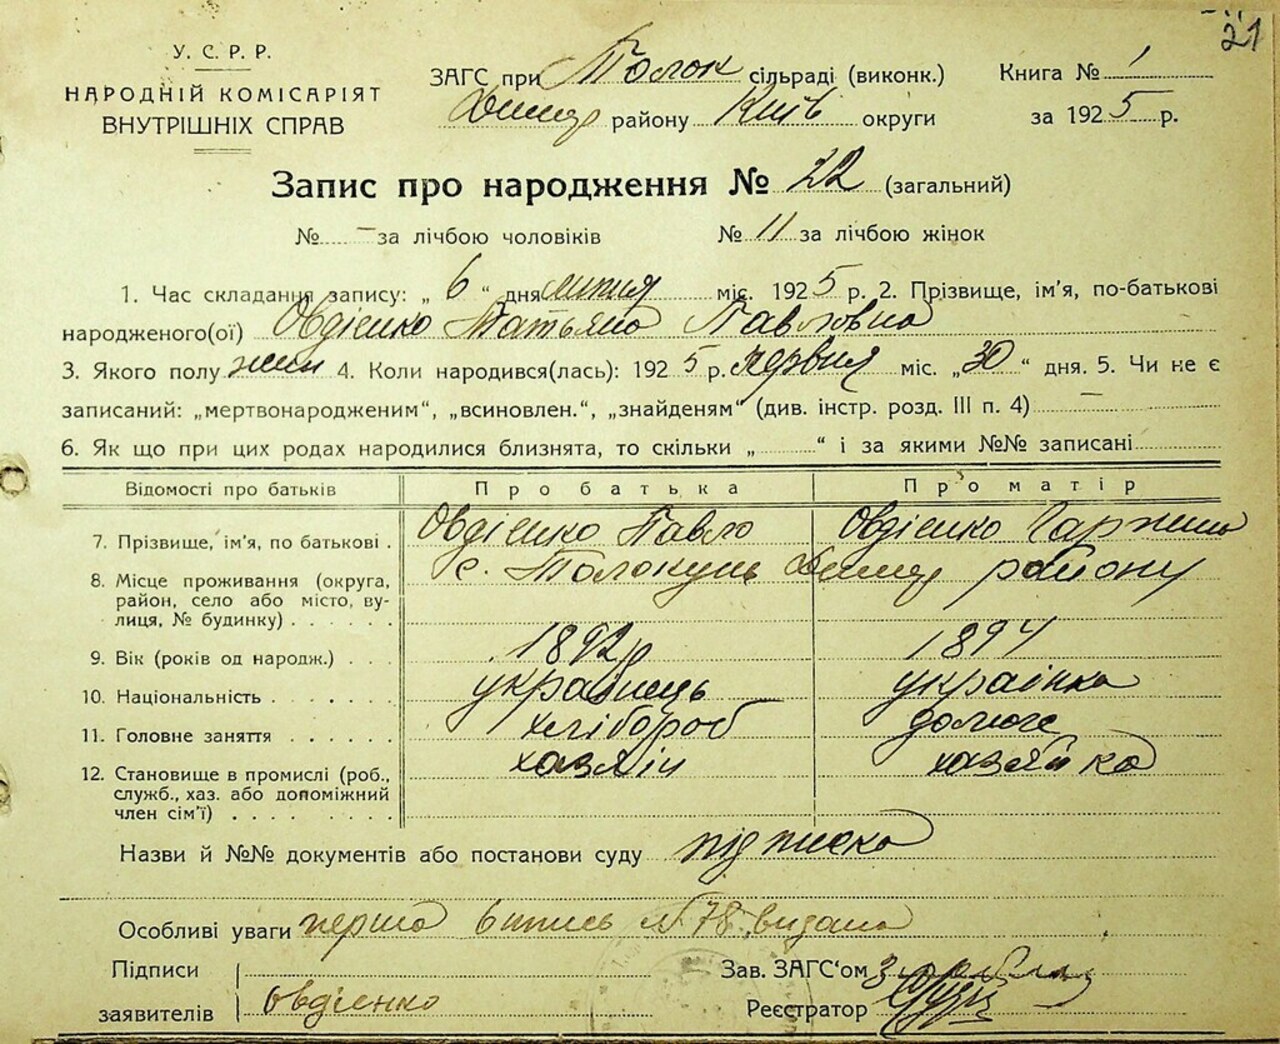 21
У. С. Р. Р.
НАРОДНІЙ КОМІСАРІЯТ
ВНУТРІШНІХ СПРАВ
ЗАГС при Толок сільраді (виконк.)
Димер району Київ округи
Книга № 1
за 1925 р.
Запис про народження № 22 (загальний)
№ – за лічбою чоловіків № 11 за лічбою жінок
1. Час складання запису: „ 6 “ дня липня міс. 1925 р. 2. Прізвище, ім'я, по-батькові
народженого(ої) Овдієнко Татьяна Павловна
3. Якого полу жин 4. Коли народився(лась): 1925 р. червня міс. „30“ дня. 5. Чи не є
записаний: „мертвонародженим“, „всиновлен.“, „знайденям“ (див. інстр. розд. III п. 4) –
6. Як що при цих родах народилися близнята, то скільки „ “ і за якими №№ записані
Відомості про батьків Про батька Про матір
7. Прізвище, ім'я, по батькові . Овдієнко Павло Овдієнко
8. Місце проживання (округа, с. Толокунь Димер району
район, село або місто, ву-
лиця, № будинку)
9. Вік (років од народж.) . . . 1892 р 1894
10. Національність українець українка
11. Головне заняття хлібороб
12. Становище в промислі (роб., хазяін хазяйка
служб., хаз. або допоміжний
член сім'ї)
Назви й №№ документів або постанови суду підписка
Особливі уваги перша випись № 78 видана
Підписи Зав. ЗАГС'ом
заявителів Овдієнко Реєстратор